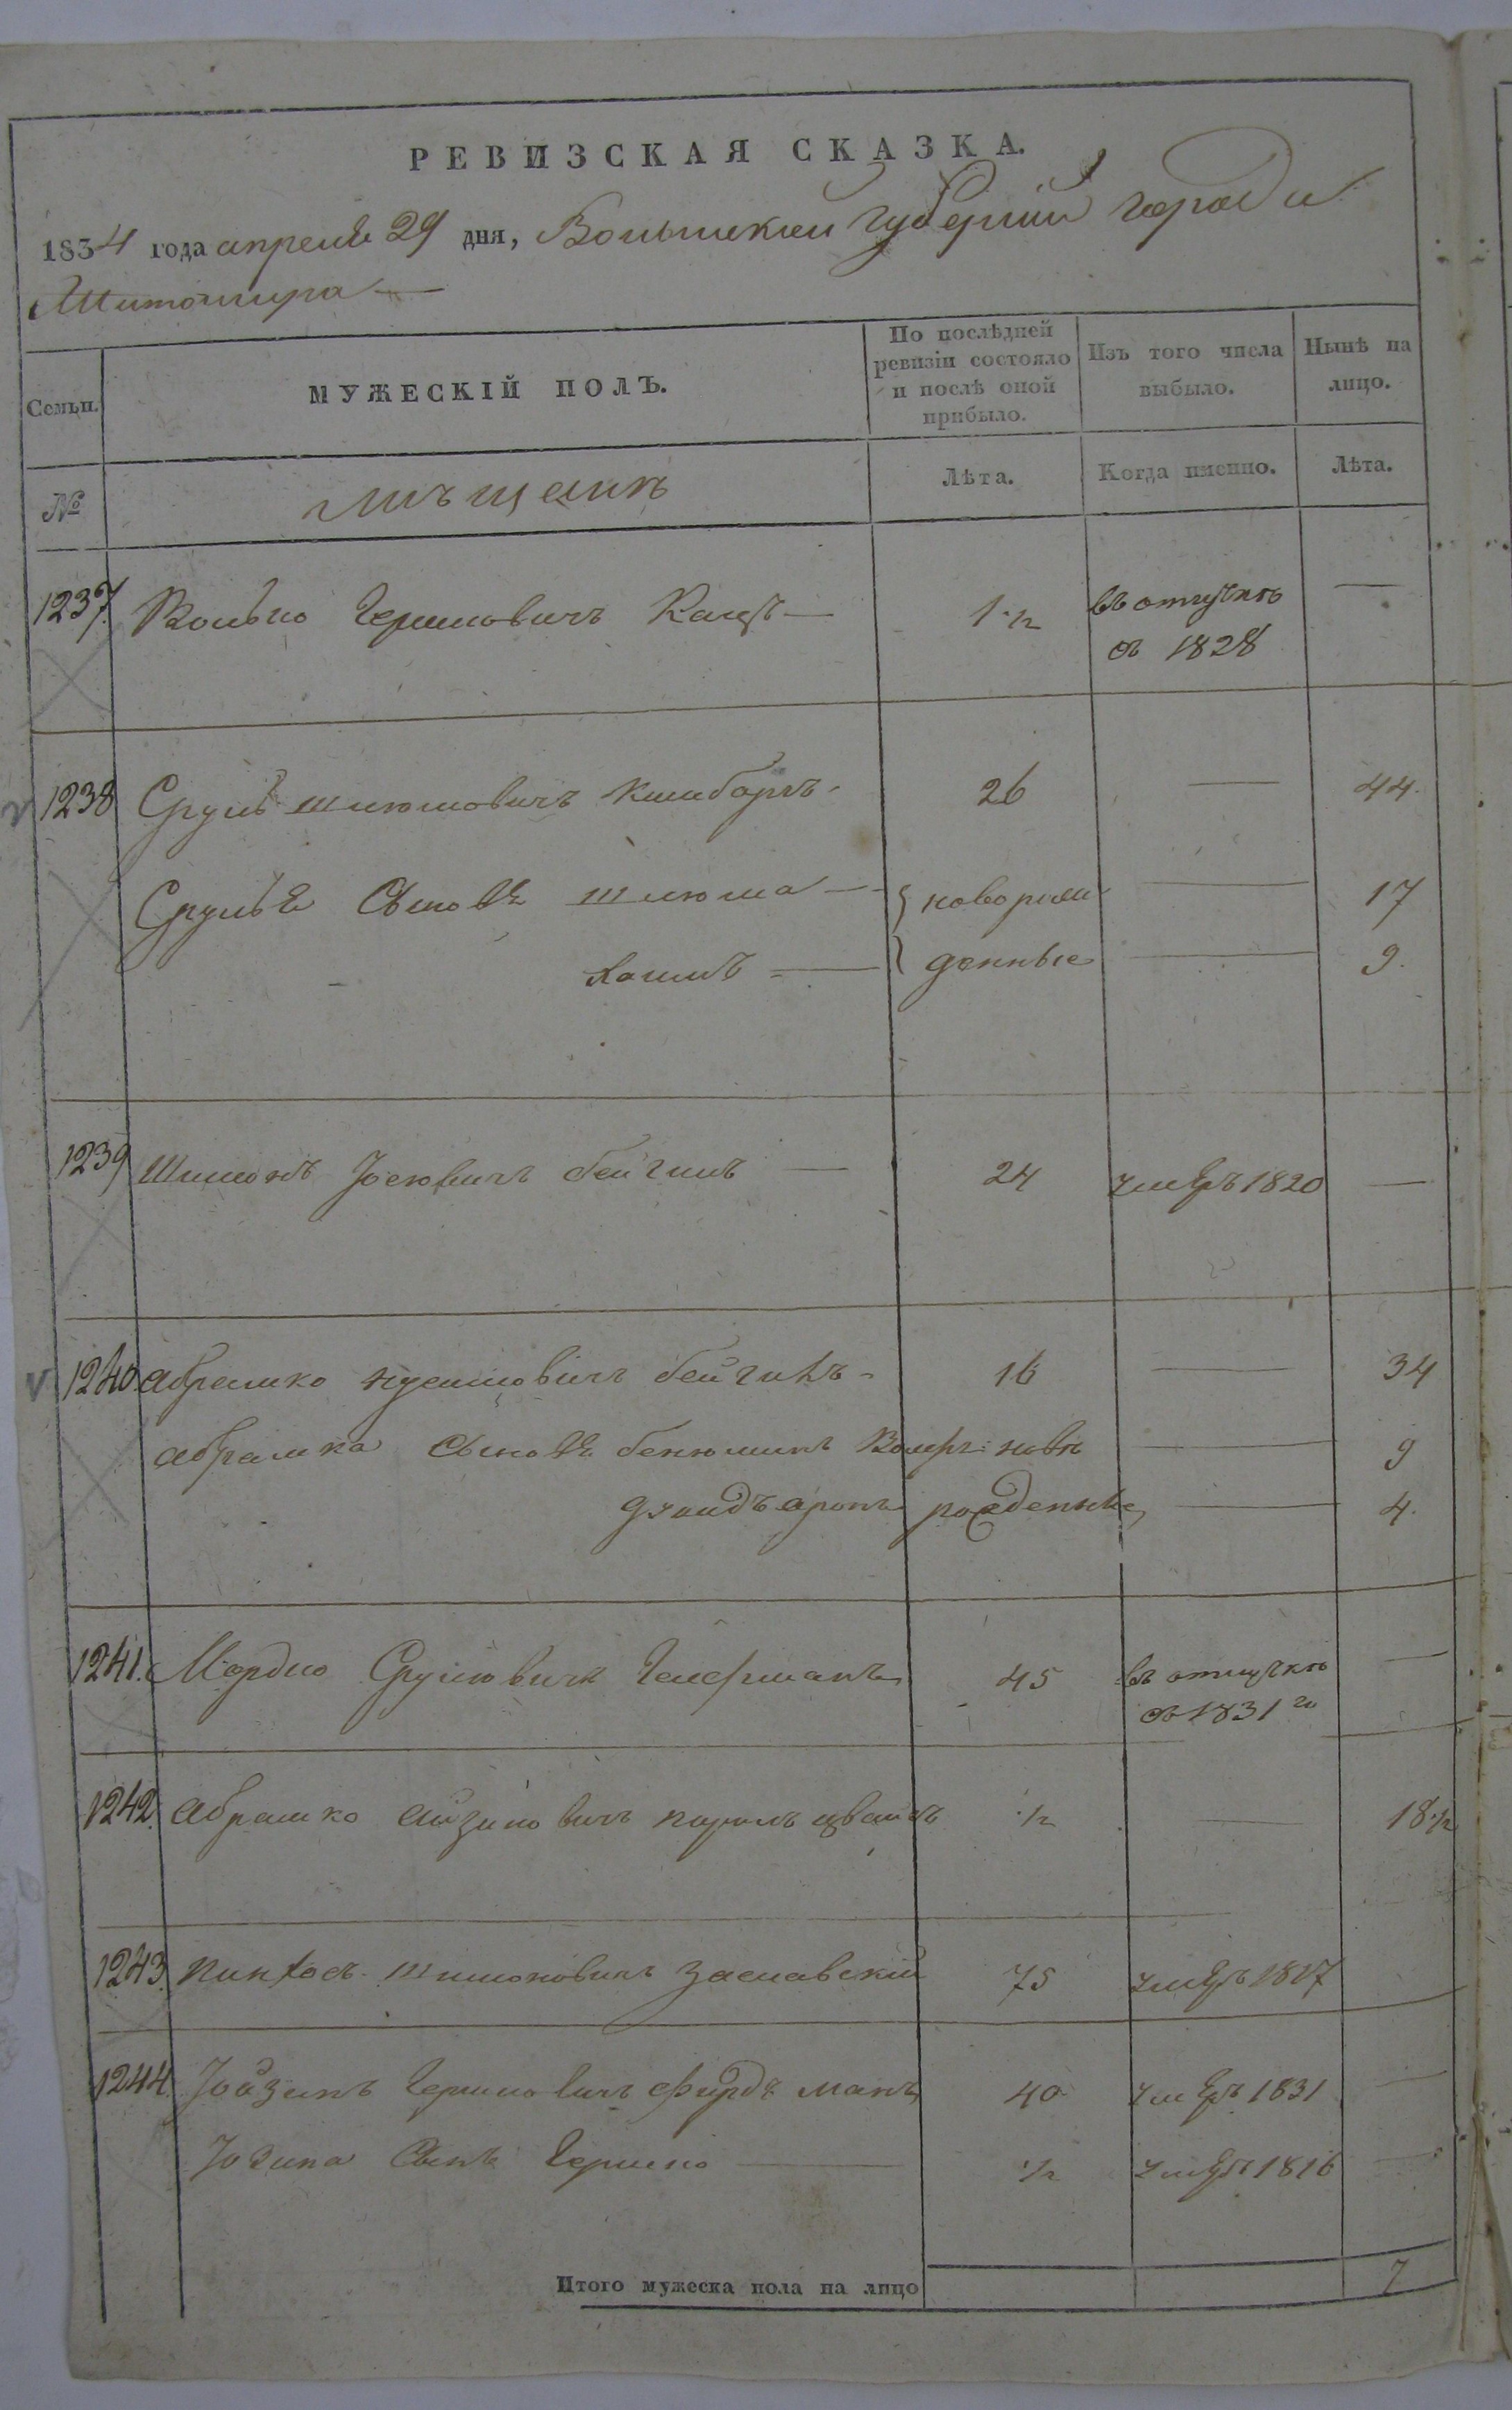 РЕВИЗСКАЯ СКАЗКА.
1834 года апреля 29 дня, Волынской Губернии города
Житомира —
Семьи.
МУЖЕСКІЙ ПОЛЪ.
По послѣдней
ревизіи состояло
и послѣ оной
прибыло.
Изъ того числа
выбыло.
Нынѣ на
лицо.
№
мѣщанѣ
Лѣта.
Когда именно.
Лѣта.
1237. Волько Гершковичъ Кацъ — 1 ½ въ отлучкѣ —
съ 1828
1238 Сруль Шлюмовичъ 26 — 44.
Сруля Сыновя Шлюма — новорож — 17
Хаимъ — денные — 9.
1239 Шимонъ Іосіовичъ бейгинъ — 24 умеръ 1820 —
1240. абрамко бейгинъ 16 — 34
абрамка Сыновя бенюминъ Вольфъ новъ — 9
Дувидъ аронъ рожденные — 4.
1241. Мордко Срулювичъ Гелерманъ 45 въ отлучкѣ —
съ 1831 го
1242. абрамко айзиковичъ цвайгъ ½ — 18 ½
1243. Пинхосъ Шимоновичъ Заславскій 75 умеръ 1817
1244. Гершковичъ манъ 40 умеръ 1831 —
Сынъ Гершко — ½ умеръ 1816 —
Итого мужеска пола на лицо 7